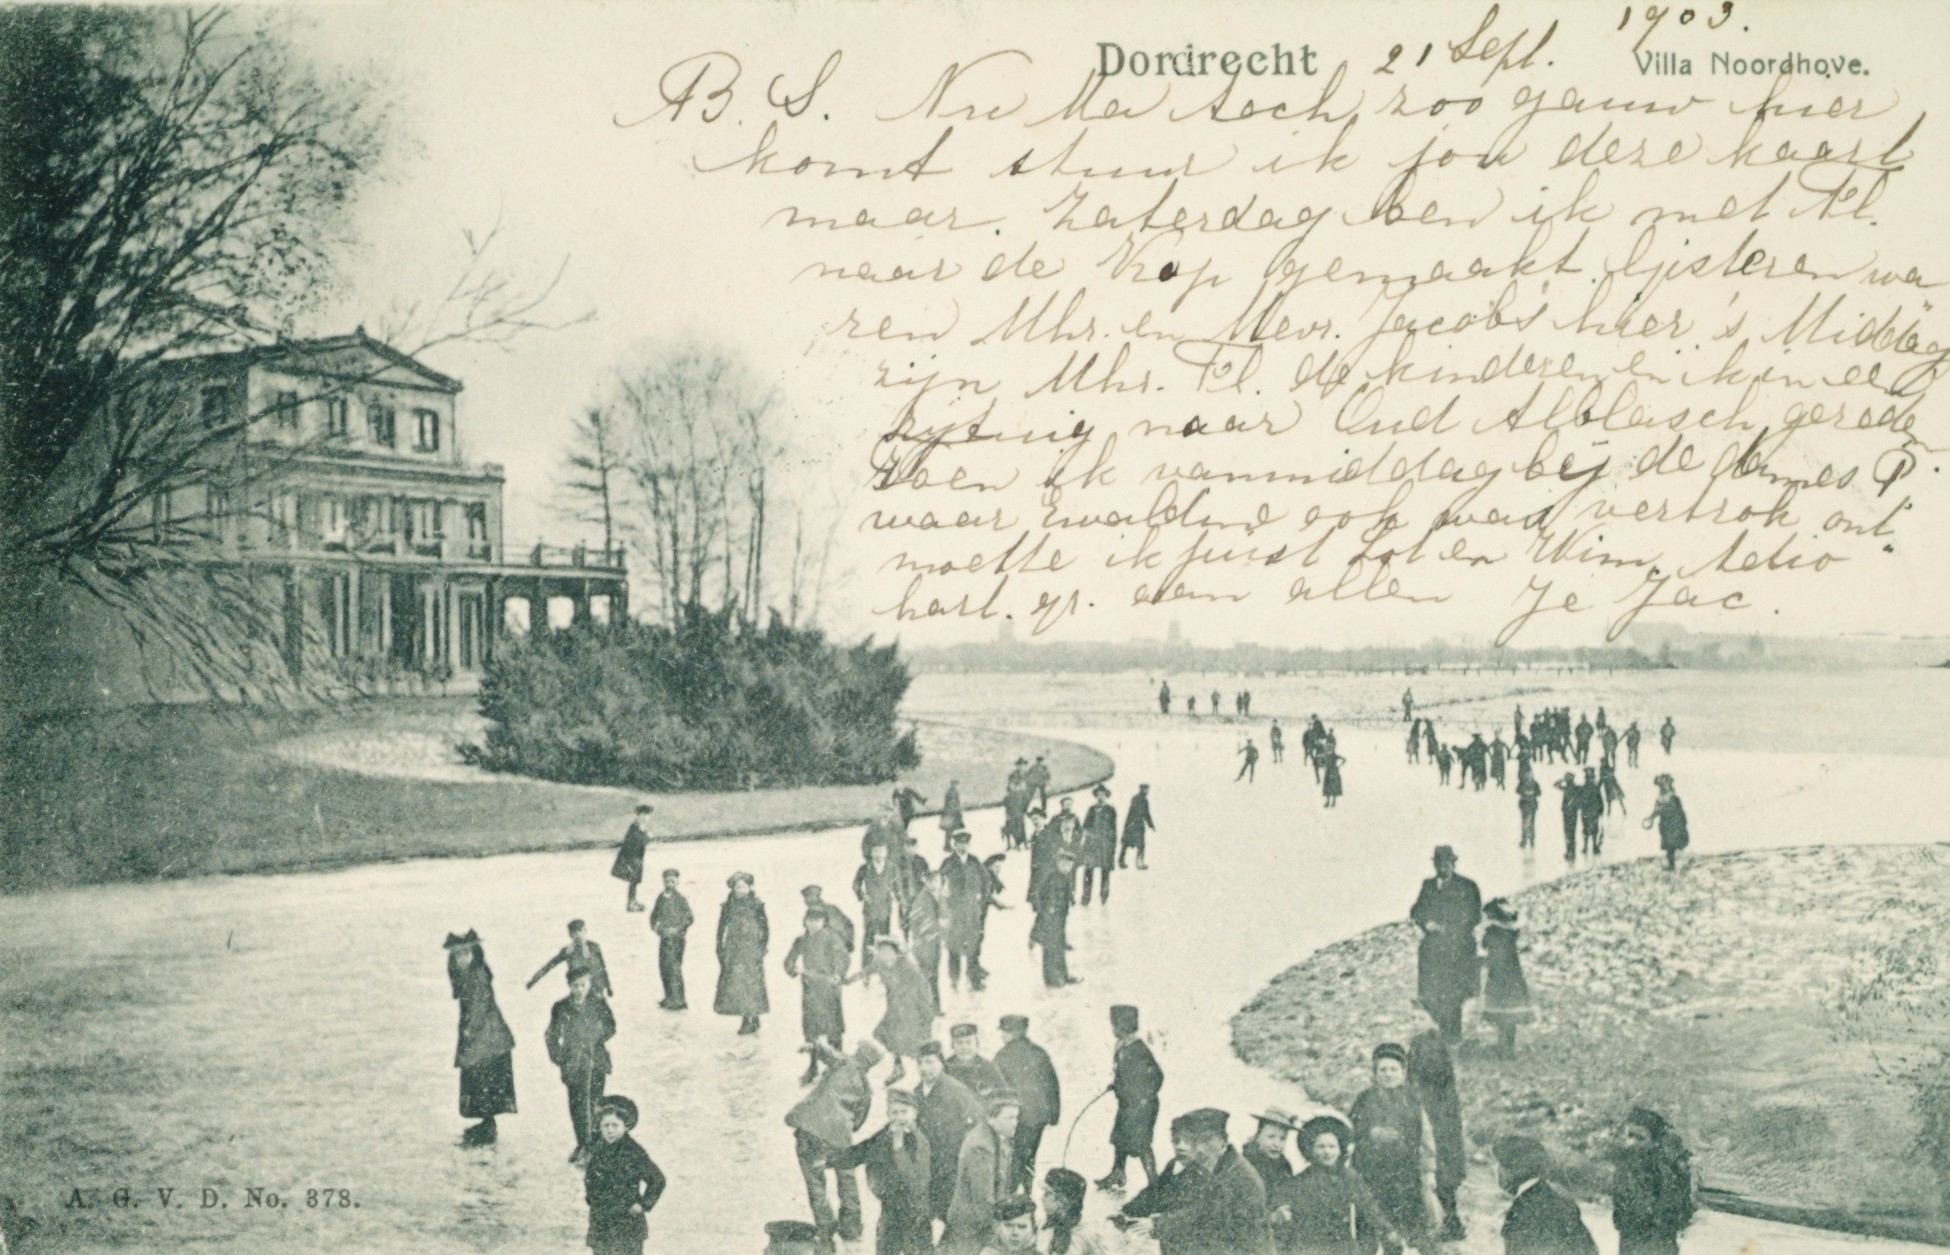 Dordrecht 21 Sept. 1903.
Villa Noordhove.
B. S. Nu Ma toch zoo gauw hier
komt stuur ik jou deze kaart
maar. Zaterdag ben ik met Pl.
naar de Kop gemaakt. Gisteren wa
ren Mhr. en Mevr. Jacobs hier, 's Middag
zijn Mhr. Pl. de kinderen en ik in een
rijtuig naar Oud Alblasch gereden
Toen ik vanmiddag bij de dames P.
waar Ewaldine ook was vertrok ont"
moette ik juist Lot en Wim. Adio
hart. gr. aan allen Je Jac.
A. G. V. D. No. 378.